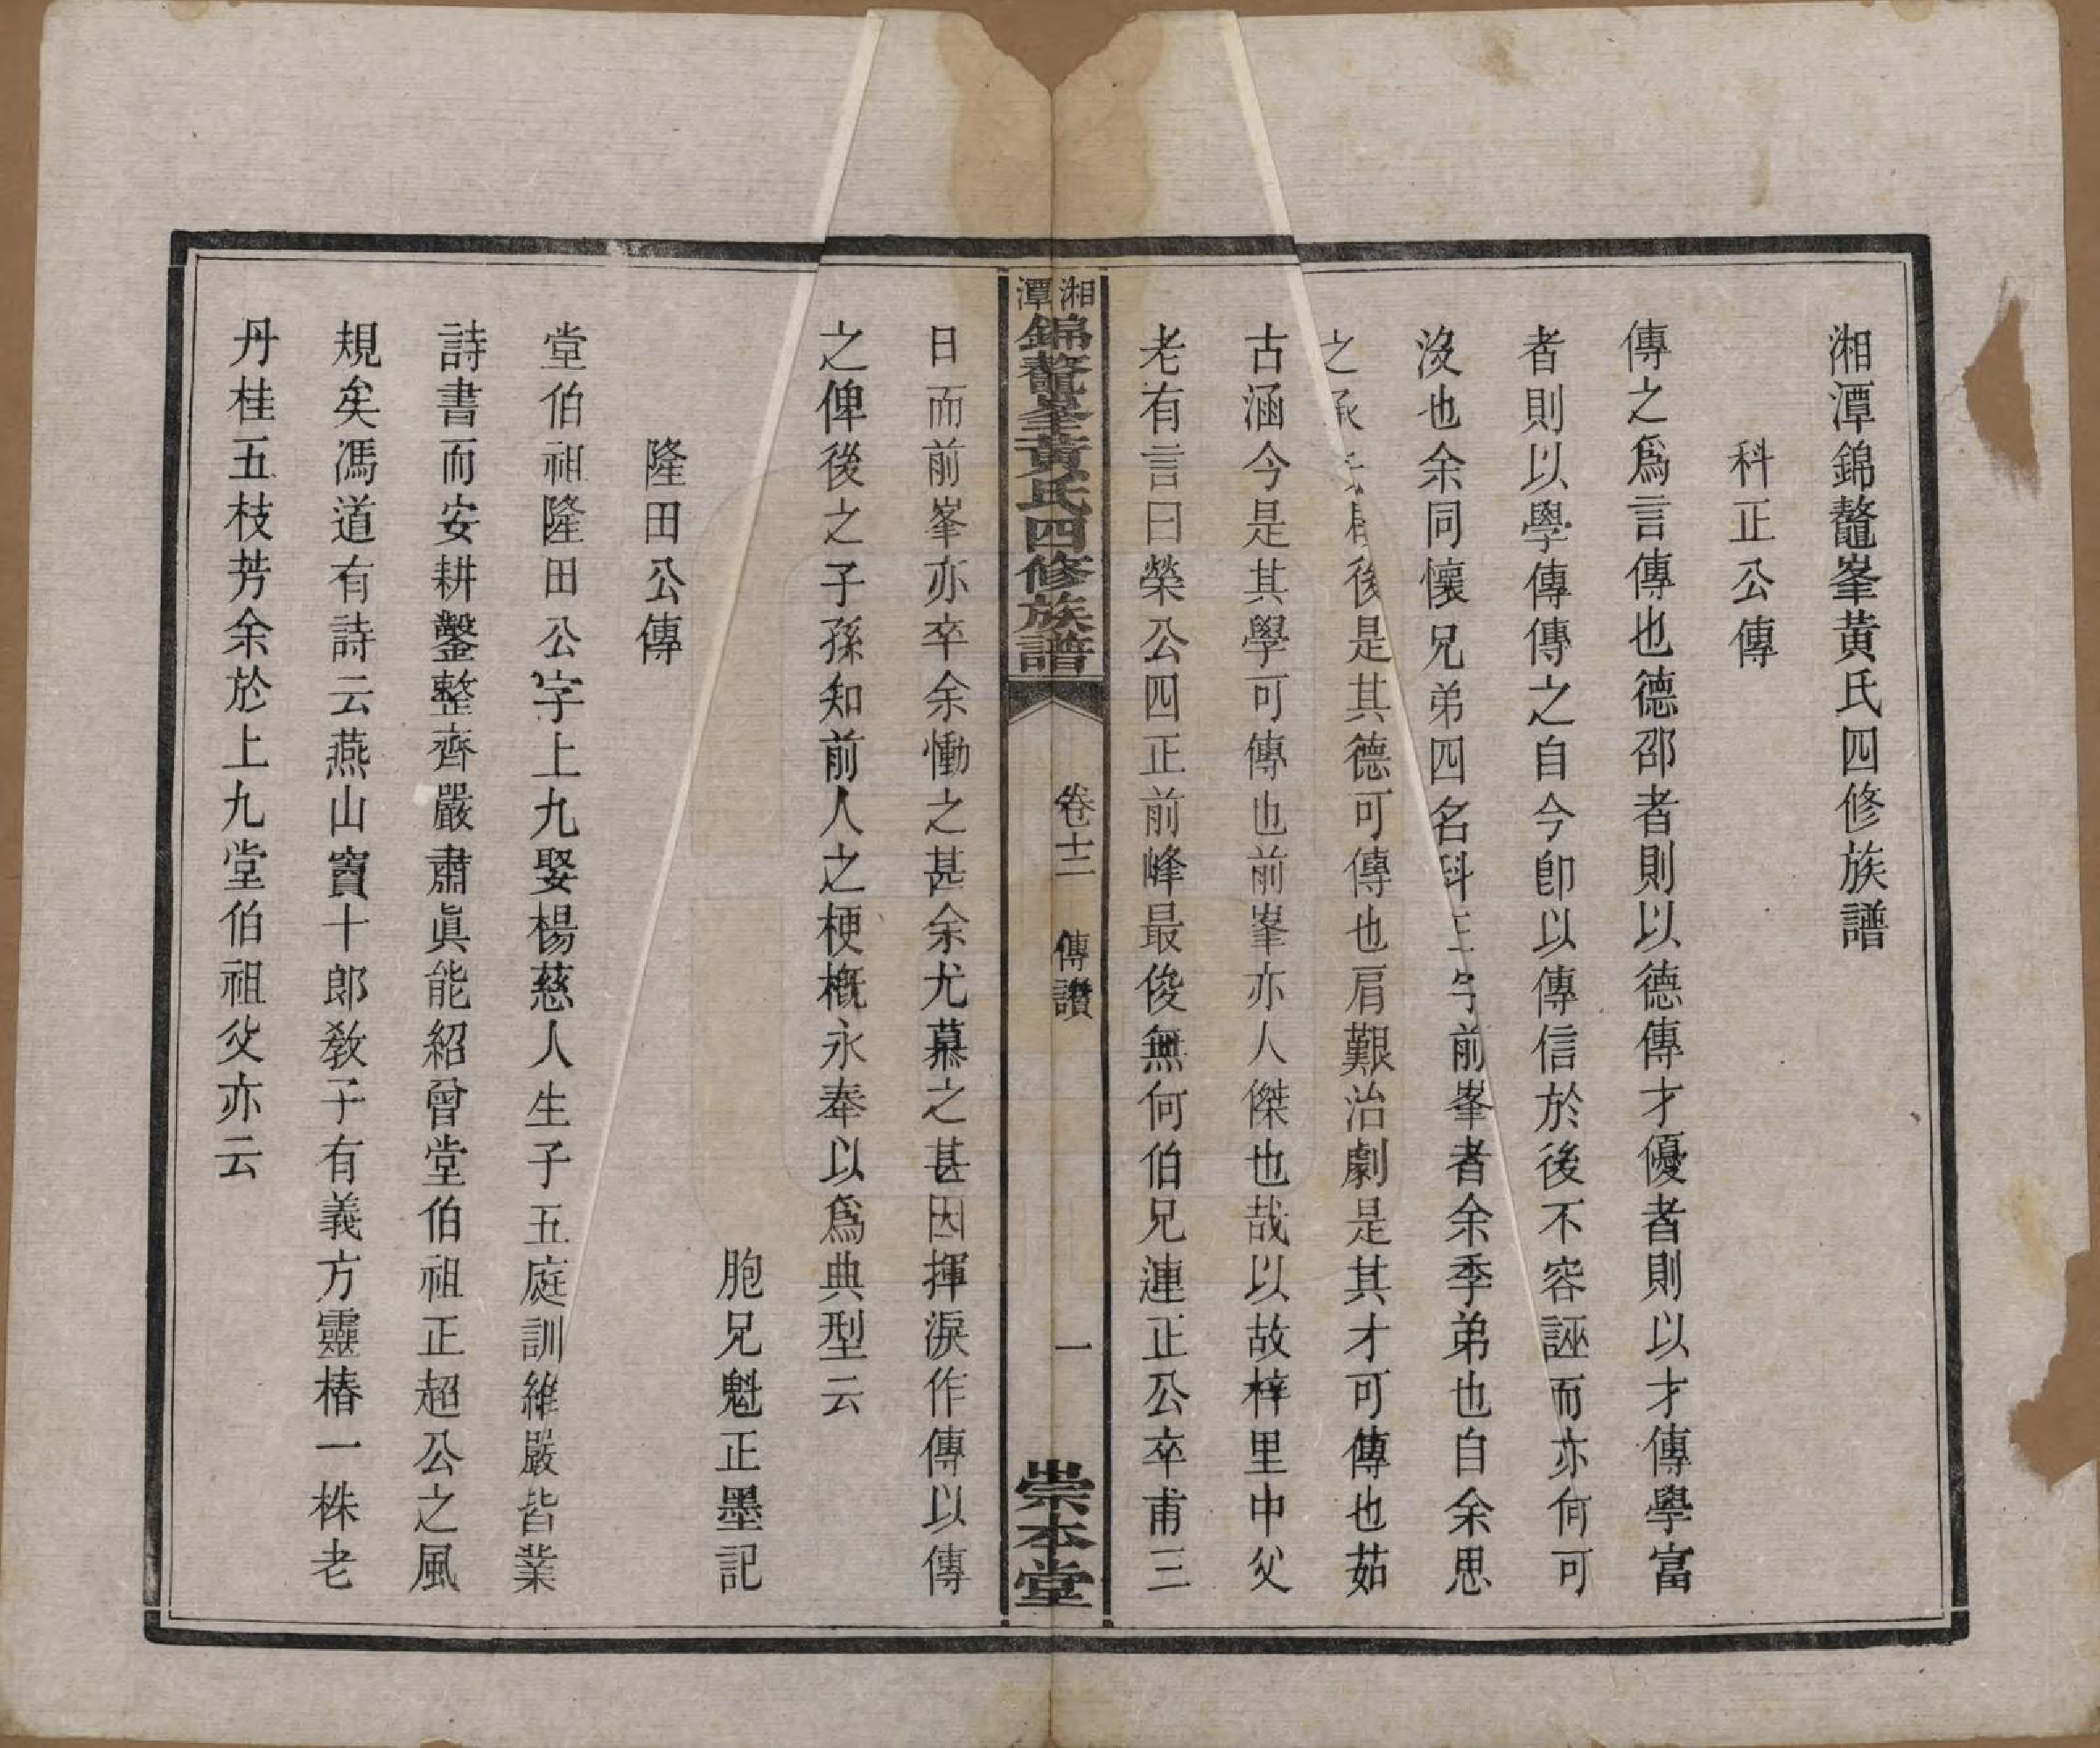 湘潭錦鼇峯黃氏四修族譜
科正公傳
傳之爲言傳也德邵者則以德傳才優者則以才傳學富
者則以學傳傳之自今卽以傳信於後不容誣而亦何可
沒也余同懷兄弟四名科正字前峯者余季弟也自余思
之承後是其德可傳也肩艱治劇是其才可傳也茹
古涵今是其學可傳也前峯亦人傑也哉以故梓里中父
老有言曰榮公四正前峰最俊無何伯兄連正公卒甫三
湘潭錦鼇峯黃氏四修族譜
卷十二 傳讚
一
崇本堂
日而前峯亦卒余慟之甚余尤慕之甚因揮淚作傳以傳
之俾後之子孫知前人之梗概永奉以爲典型云
胞兄魁正墨記
隆田公傳
堂伯祖隆田公字上九娶楊慈人生子五庭訓維嚴皆業
詩書而安耕鑿整齊嚴肅眞能紹曾堂伯祖正超公之風
規矣馮道有詩云燕山竇十郎敎子有義方靈椿一株老
丹桂五枝芳余於上九堂伯祖父亦云